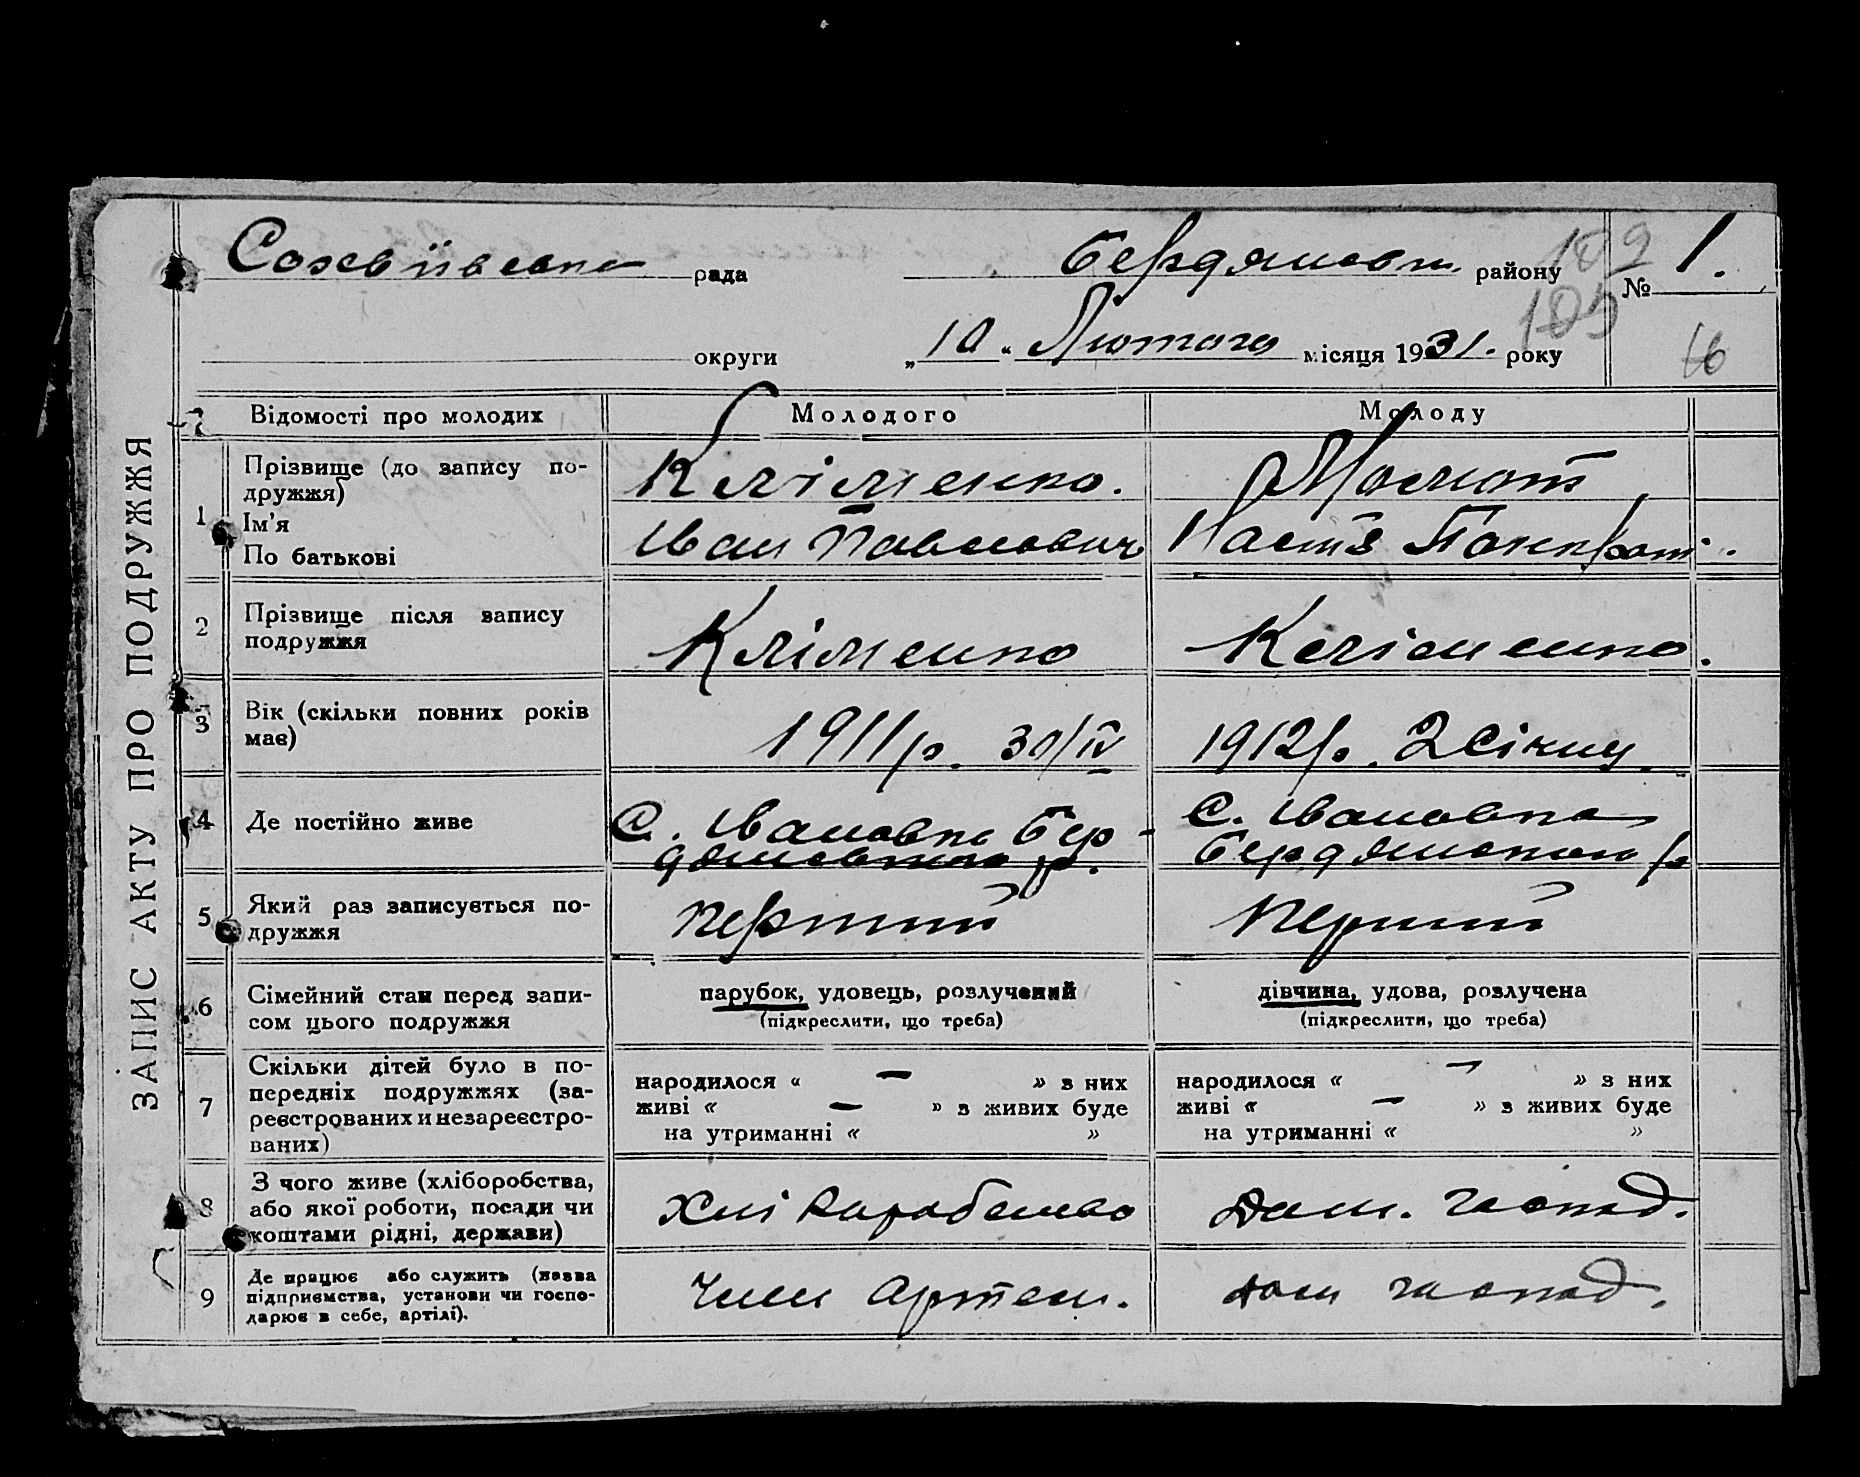 рада Бердянськ. району № 1.
округи „10“ Лютого місяця 1931. року 16
ЗАПИС АКТУ ПРО ПОДРУЖЖЯ
Відомості про молодих Молодого Молоду
1 Прізвище (до запису по-
дружжя) Кліменко.
Ім'я
По батькові Іван Павлович Настя Панкрат.
2 Прізвище після запису
подружжя Кліменко Кліменко.
3 Вік (скільки повних років
має) 1911 р. 30/IV 1912 р. 2 січня
4 Де постійно живе С. Івановка Бер-
дянського р. С. Івановка
Бердянського р
5 Який раз записується по-
дружжя перший перший
6 Сімейний стан перед запи-
сом цього подружжя
парубок, удовець, розлучений
(підкреслити, що треба)
дівчина, удова, розлучена
(підкреслити, що треба)
7 Скільки дітей було в по-
передніх подружжях (за-
реєстрованих и незареєстро-
ваних)
народилося « — » з них
живі « — » з живих буде
на утриманні « »
народилося « — » з них
живі « — » з живих буде
на утриманні « »
8 З чого живе (хліборобства,
або якої роботи, посади чи
коштами рідні, держави) Хліборобство Дом. господ.
9 Де працює або служить (назва
підприємства, установи чи госпо-
дарює в себе, артілі). Член артели. дом господ.